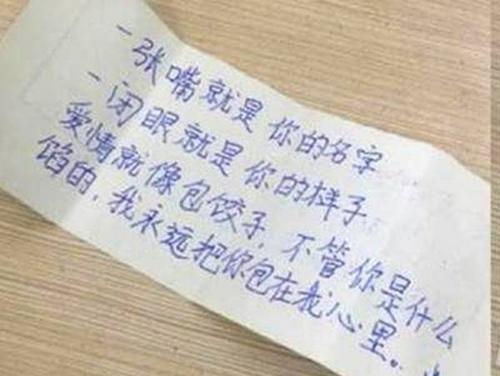 一张嘴就是你的名字
一闭眼就是你的样子
爱情就像包饺子,不管你是什么
馅的,我永远把你包在我心里。